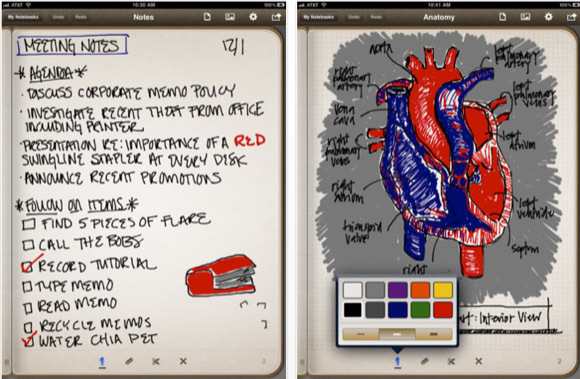 AT&T
10:30 AM
My Notebooks
Undo
Redo
Notes
MEETING NOTES
12/1
*AGENDA*
· DISCUSS CORPORATE MEMO POLICY
· INVESTIGATE RECENT THEFT FROM OFFICE
INCLUDING PRINTER
· PRESENTATION RE: IMPORTANCE OF A RED
SWINGLINE STAPLER AT EVERY DISK
· ANNOUNCE RECENT PROMOTIONS
*FOLLOW ON ITEMS*
FIND 5 PIECES OF FLARE
CALL THE BOBS
RECORD TUTORIAL
TYPE MEMO
READ MEMO
RECYCLE MEMOS
WATER CHIA PET
2
AT&T
10:41 AM
100%
My Notebooks
Undo
Redo
Anatomy
aorta
left
pulmonary
artery
right
pulmonary
artery
left pulmonary
veins
vena
cava
right
pulmonary
veins
left
atrium
right
atrium
left
ventricle
valve
septum
right
art: Interior View
2